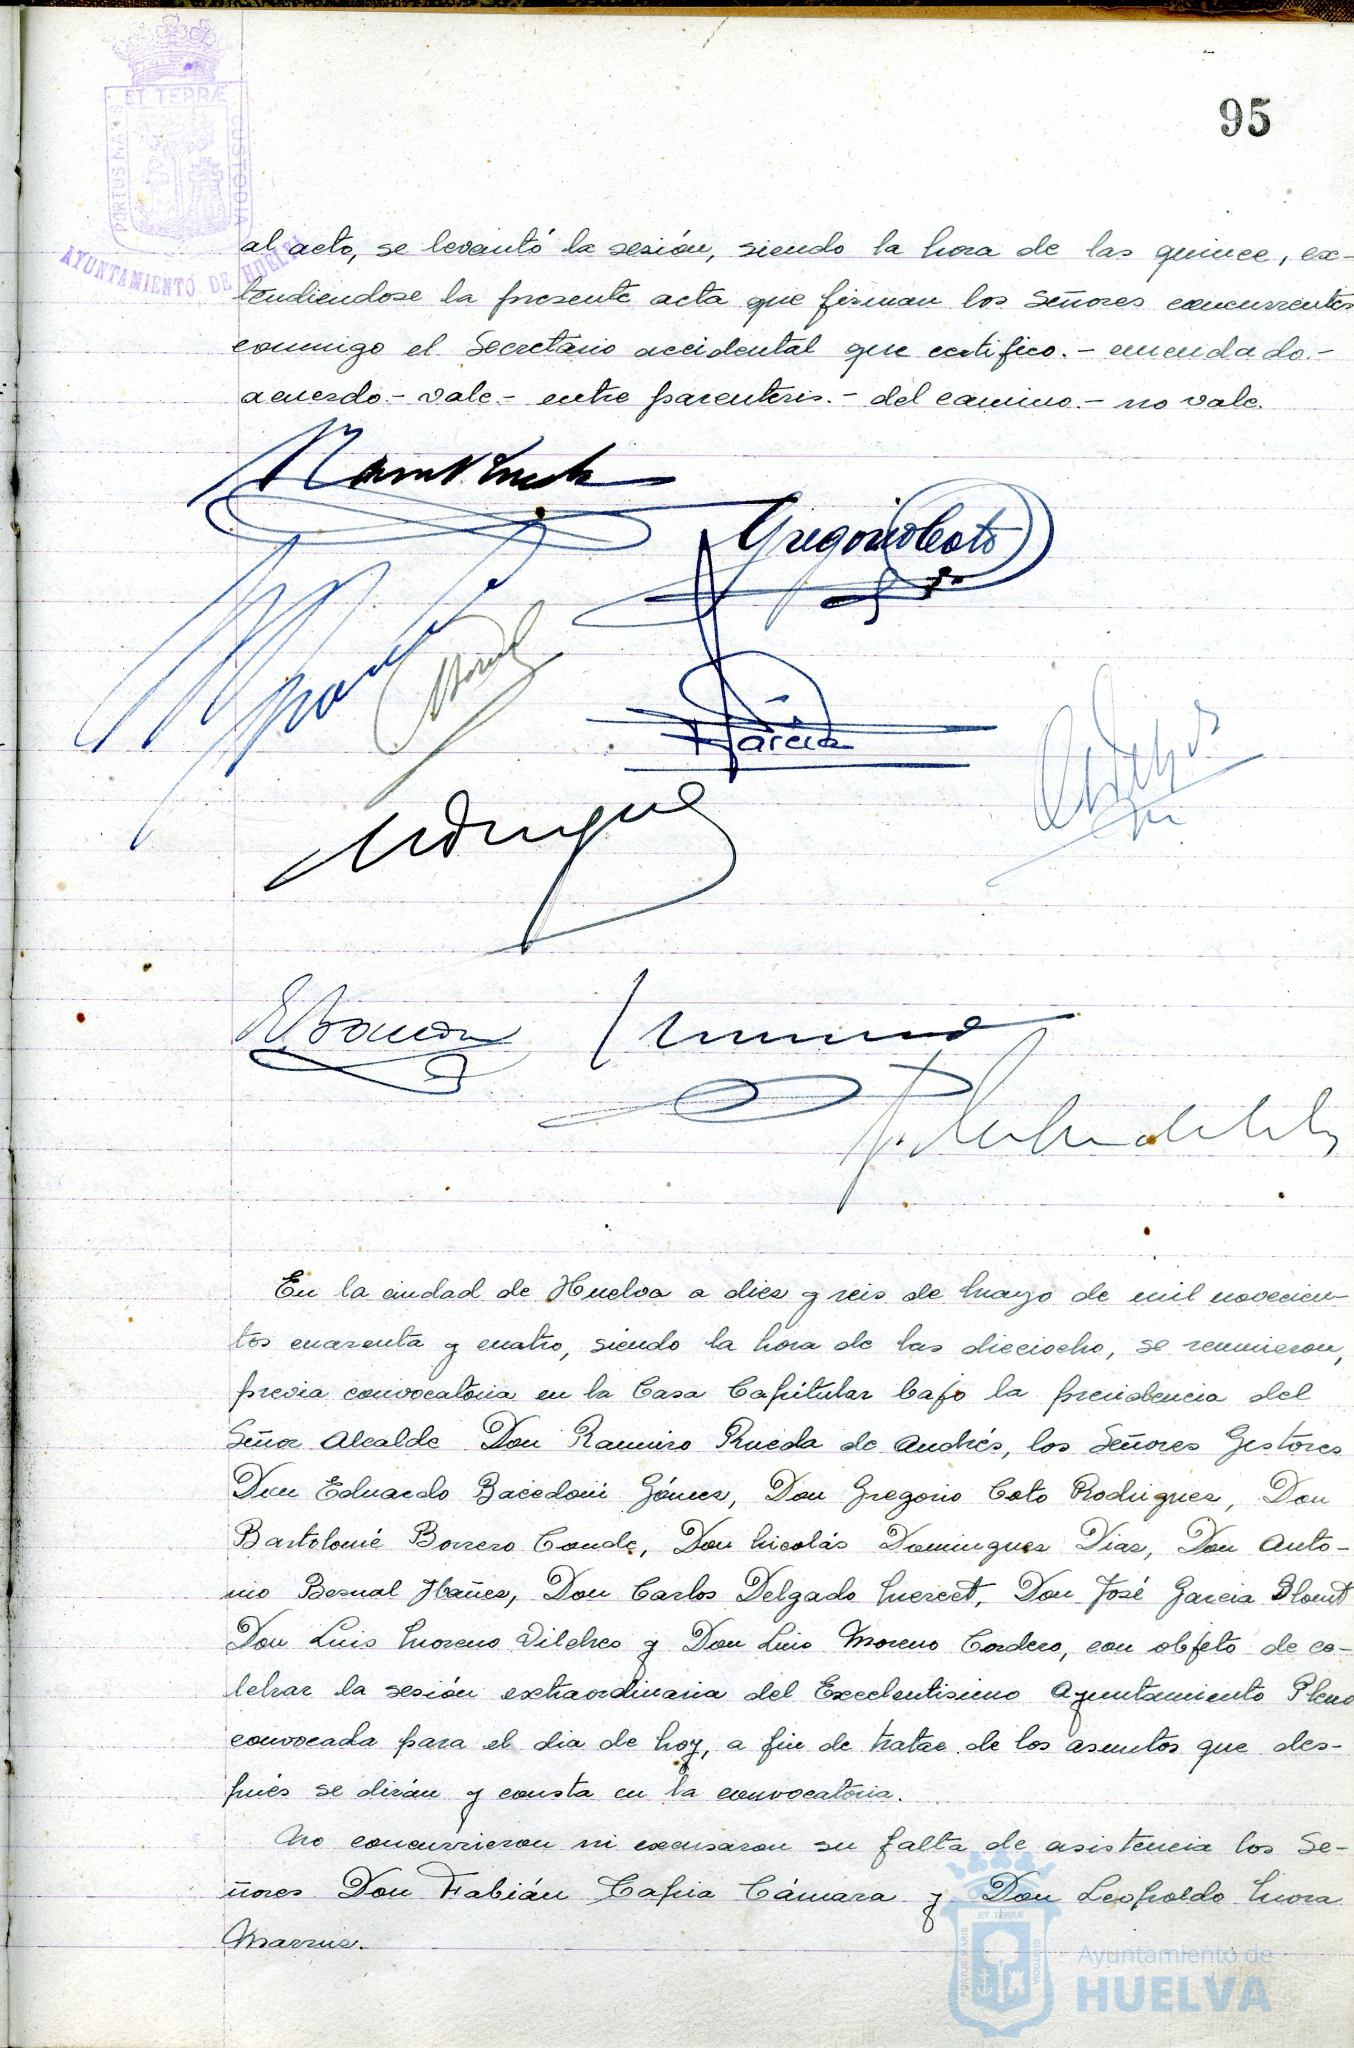 95
PORTUS MARIS
ET TERRÆ
CUSTODIA
AYUNTAMIENTO DE HUELVA
al acto, se levantó la sesión, siendo la hora de las quince, ex-
tendiendose la presente acta que firman los Señores concurrentes
conmigo el Secretario accidental que certifico.- enmendado.-
acuerdo.- vale.- entre parentesis.- del camino.- no vale.
Gregorio Coto
García
En la ciudad de Huelva a diez y seis de Mayo de mil novecien-
tos cuarenta y cuatro, siendo la hora de las dieciocho, se reunieron,
previa convocatoria en la Casa Capitular bajo la presidencia del
Señor Alcalde Don Ramiro Rueda de Andrés, los Señores Gestores
Don Eduardo Bacedoni Gómez, Don Gregorio Coto Rodriguez, Don
Bartolomé Borrero Conde, Don Nicolás Dominguez Diaz, Don Anto-
nio Bernal Ibañez, Don Carlos Delgado Mercet, Don José Garcia
Don Luis Moreno Vilches y Don Luis Moreno Cordero, con objeto de ce-
lebrar la sesión extraordinaria del Excelentisimo Ayuntamiento Pleno
convocada para el dia de hoy, a fin de tratar de los asuntos que des-
pués se dirán y consta en la convocatoria.
No concurrieron ni excusaron su falta de asistencia los Se-
ñores Don Fabián Tapia Cámara y Don Leopoldo Mora
PORTUS MARIS
ET TERRÆ
CUSTODIA
Ayuntamiento de
HUELVA